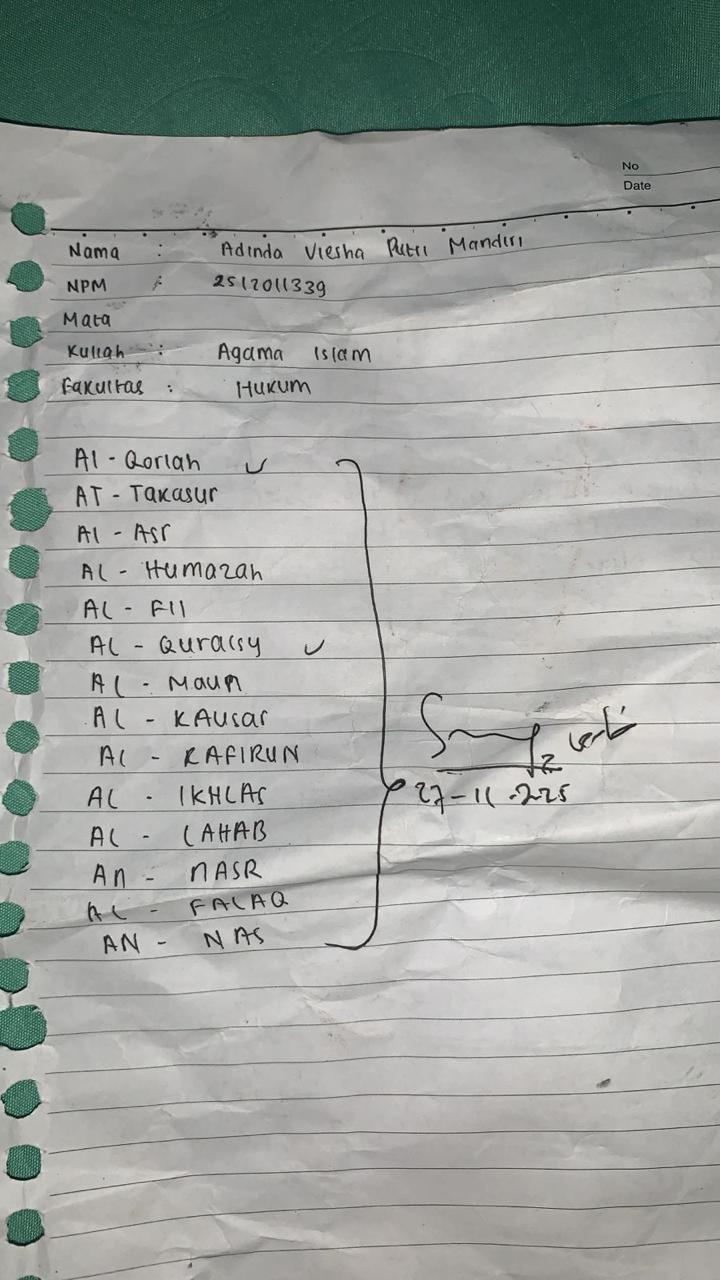 No
Date
Nama : Adinda Viesha Putri Mandiri
NPM : 2512011339
Mata
Kuliah : Agama Islam
Fakultas : Hukum
Al - Qoriah ✓
AT - Takasur
Al - Asr
AL - Humazah
AL - Fil
AL - Quraisy ✓
AL - Maun
AL - KAUsar
AL - KAFIRUN
AL - IKHLAS
AL - LAHAB
An - NASR
AL - FALAQ
AN - NAS
27-11-2025